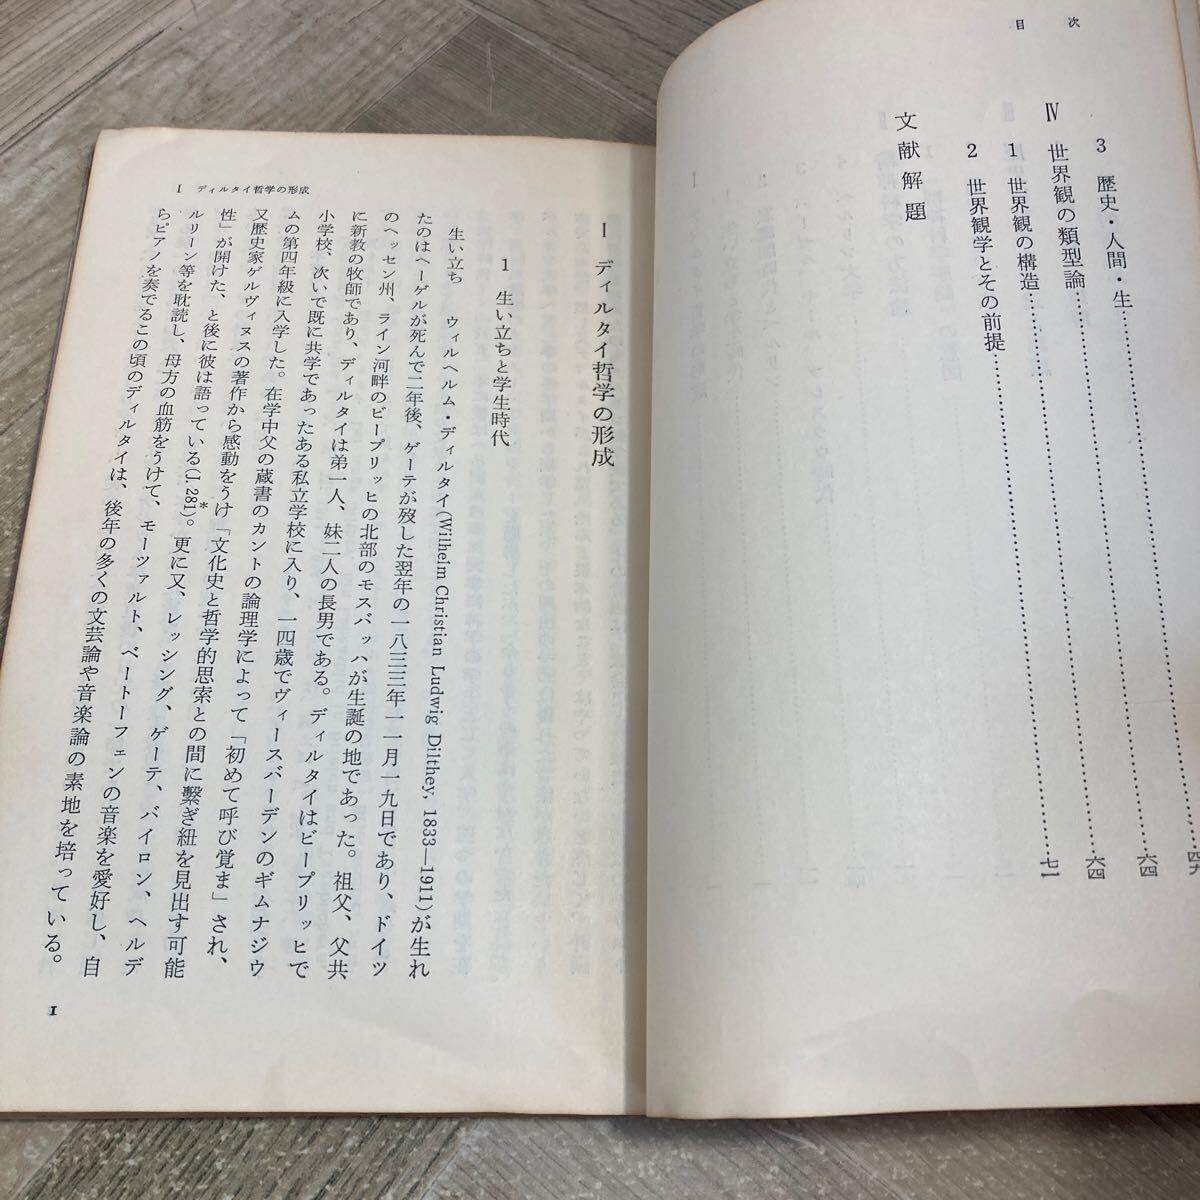 目次
3 歴史・人間・生……四九
Ⅳ 世界観の類型論……六四
1 世界観の構造……六四
2 世界観学とその前提……七一
文献解題
Ⅰ ディルタイ哲学の形成
1 生い立ちと学生時代
生い立ち ウィルヘルム・ディルタイ(Wilhelm Christian Ludwig Dilthey, 1833—1911)が生れ
たのはヘーゲルが死んで二年後、ゲーテが歿した翌年の一八三三年一一月一九日であり、ドイツ
のヘッセン州、ライン河畔のビープリッヒの北部のモスバッハが生誕の地であった。祖父、父共
に新教の牧師であり、ディルタイは弟一人、妹二人の長男である。ディルタイはビープリッヒで
小学校、次いで既に共学であったある私立学校に入り、一四歳でヴィースバーデンのギムナジウ
ムの第四年級に入学した。在学中父の蔵書のカントの論理学によって「初めて呼び覚ま」され、
又歴史家ゲルヴィヌスの著作から感動をうけ「文化史と哲学的思索との間に繋ぎ紐を見出す可能
性」が開けた、と後に彼は語っている(J. 281)*。更に又、レッシング、ゲーテ、バイロン、ヘルデ
ルリーン等を耽読し、母方の血筋をうけて、モーツァルト、ベートーフェンの音楽を愛好し、自
らピアノを奏でるこの頃のディルタイは、後年の多くの文芸論や音楽論の素地を培っている。
Ⅰ ディルタイ哲学の形成
1